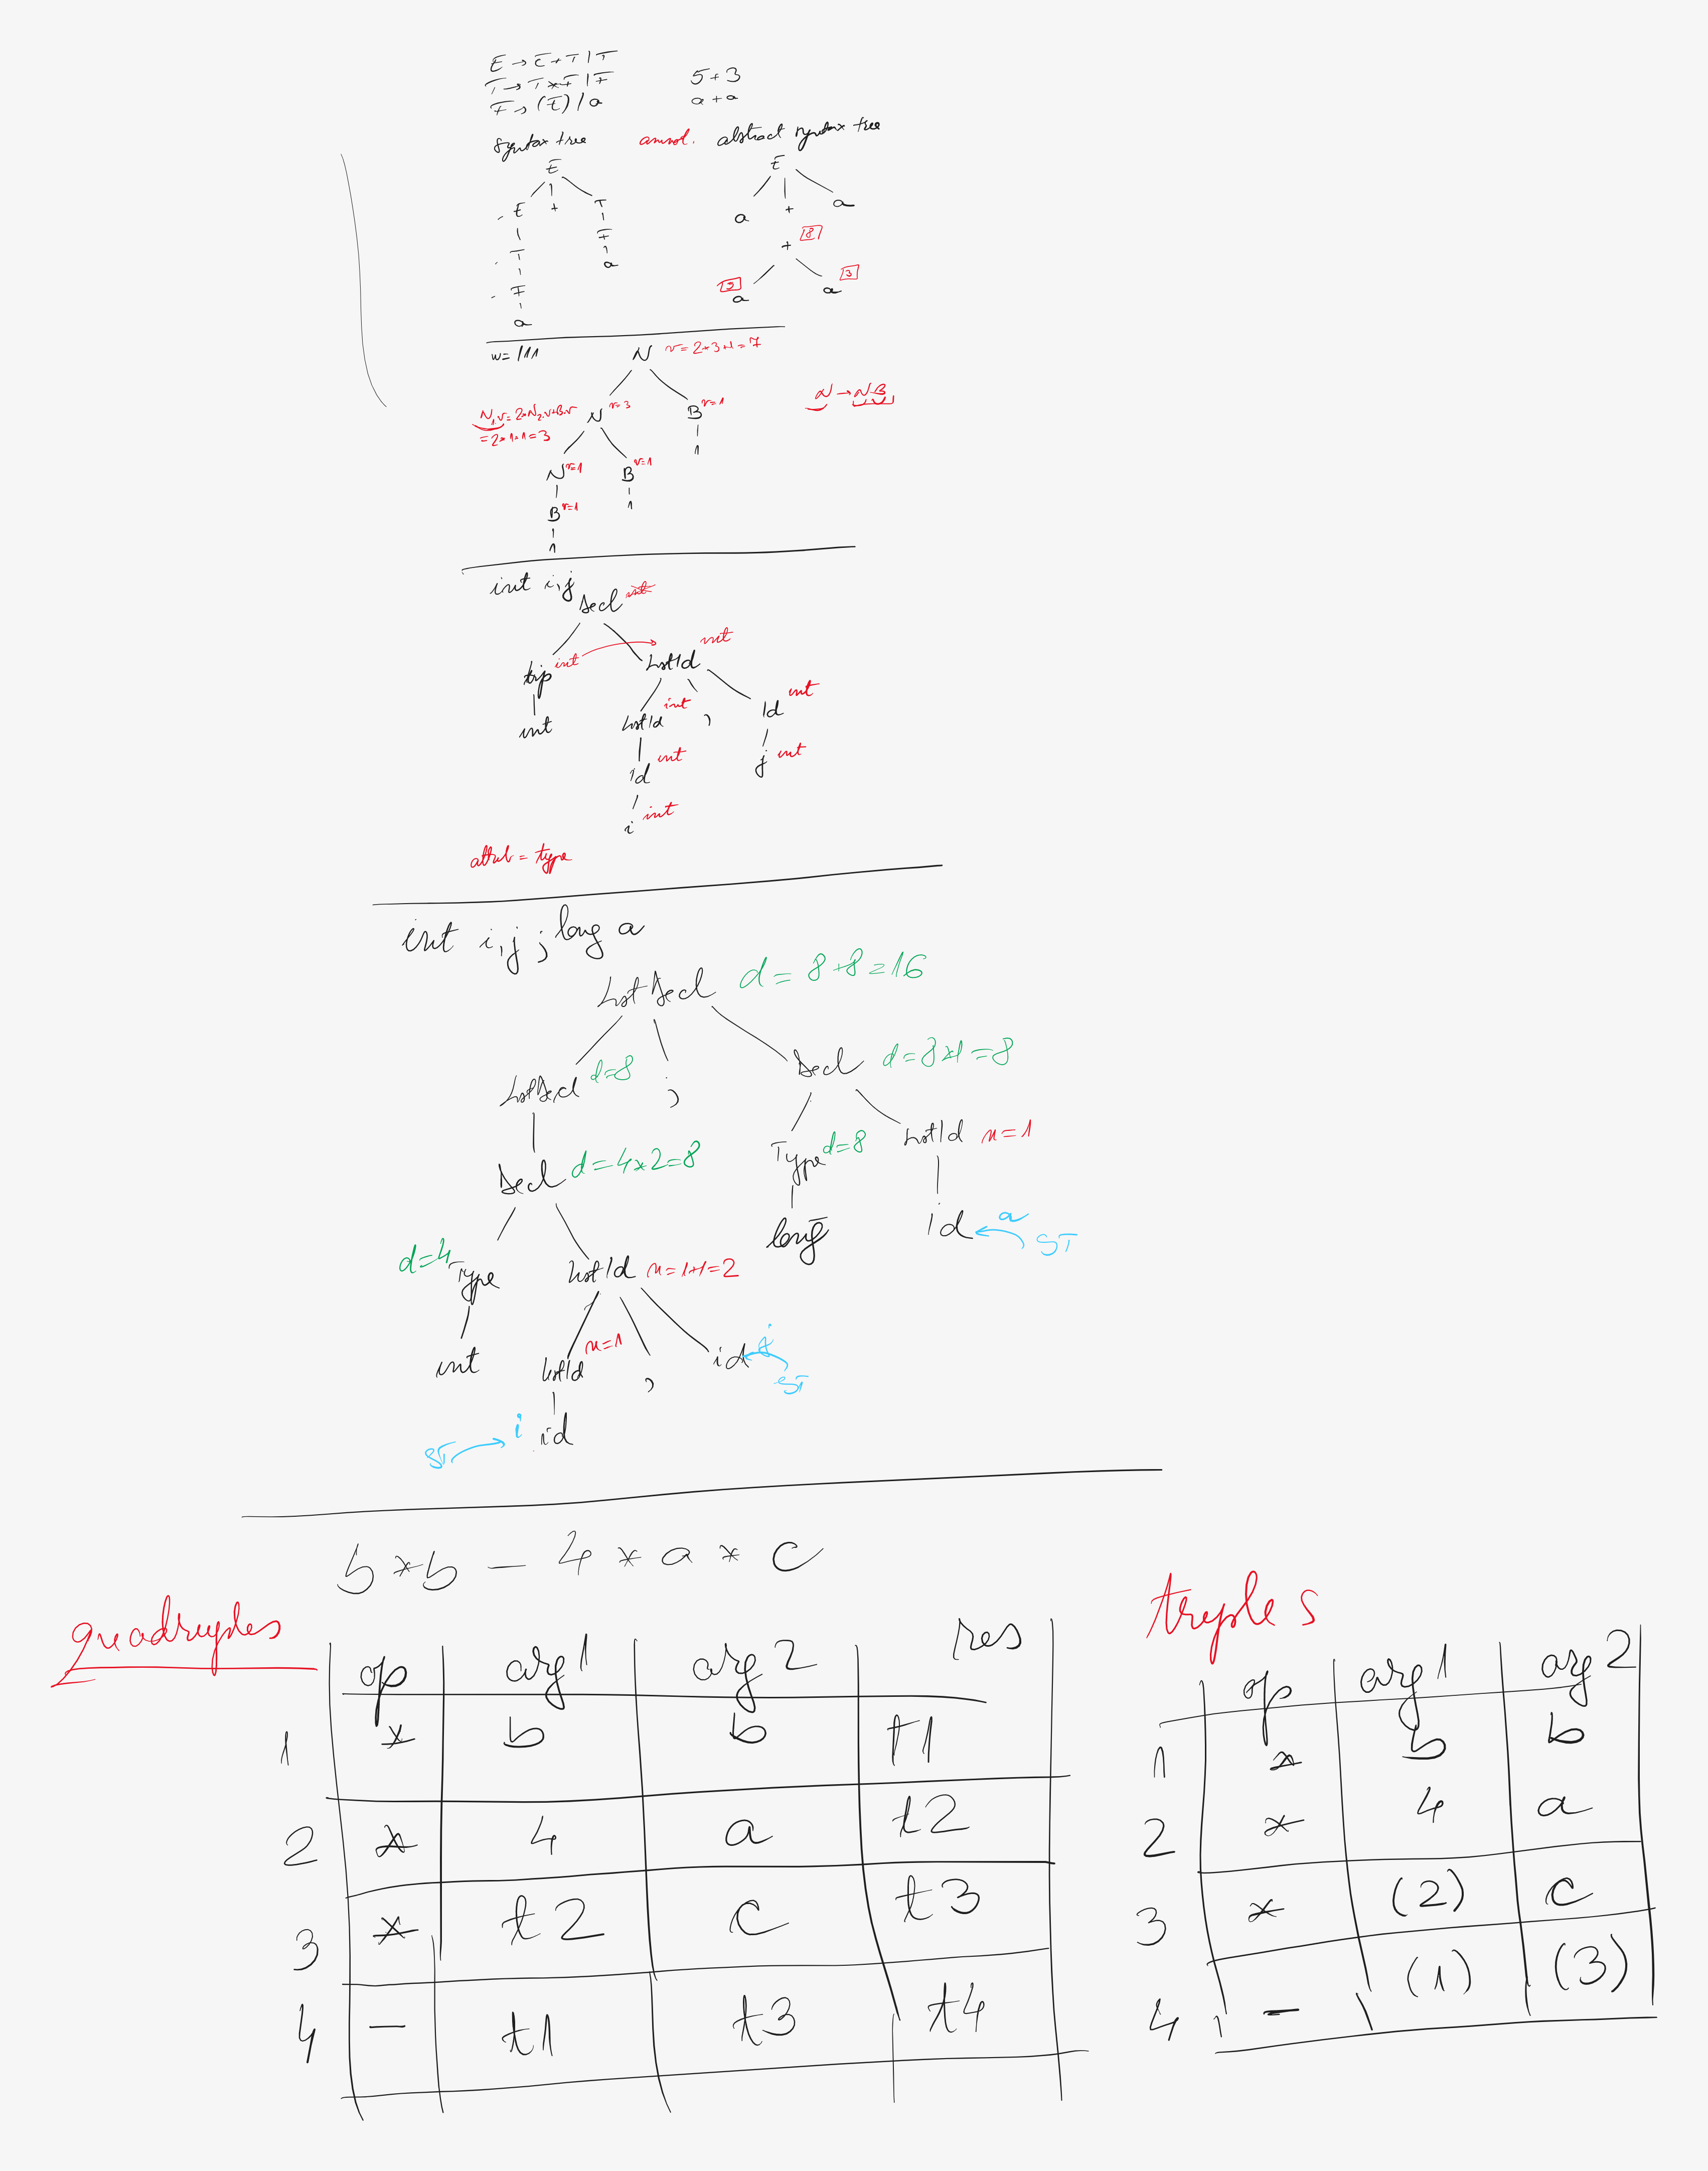 E → E + T | T
T → T * F | F
F → (E) | a
5 + 3
a + a
syntax tree
annot. abstract syntax tree
E
E + T
T F
F a
a
E
a + a
+ 8
5 3
a a
w = 111
N v = 2*3+1 = 7
N → N B
N₁.v = 2*N₂.v + B.v
= 2*1+1 = 3
N v=3 B v=1
1
N v=1 B v=1
1
B v=1
1
int i, j
Decl int
tip int
ListId int
int
ListId int , Id int
id int j int
i int
attrib = type
int i, j ; long a
LstDecl d = 8+8 = 16
LstDecl d=8 ; Decl d = 8*1 = 8
Decl d = 4*2 = 8
Type d=8 LstId n=1
long id a ST
d=4 Type LstId n=1+1=2
int LstId n=1 , id j ST
ST i id
b * b - 4 * a * c
quadruples
op arg1 arg2 res
1 * b b t1
2 * 4 a t2
3 * t2 c t3
4 - t1 t3 t4
tryples
op arg1 arg2
1 * b b
2 * 4 a
3 * (2) c
4 - (1) (3)